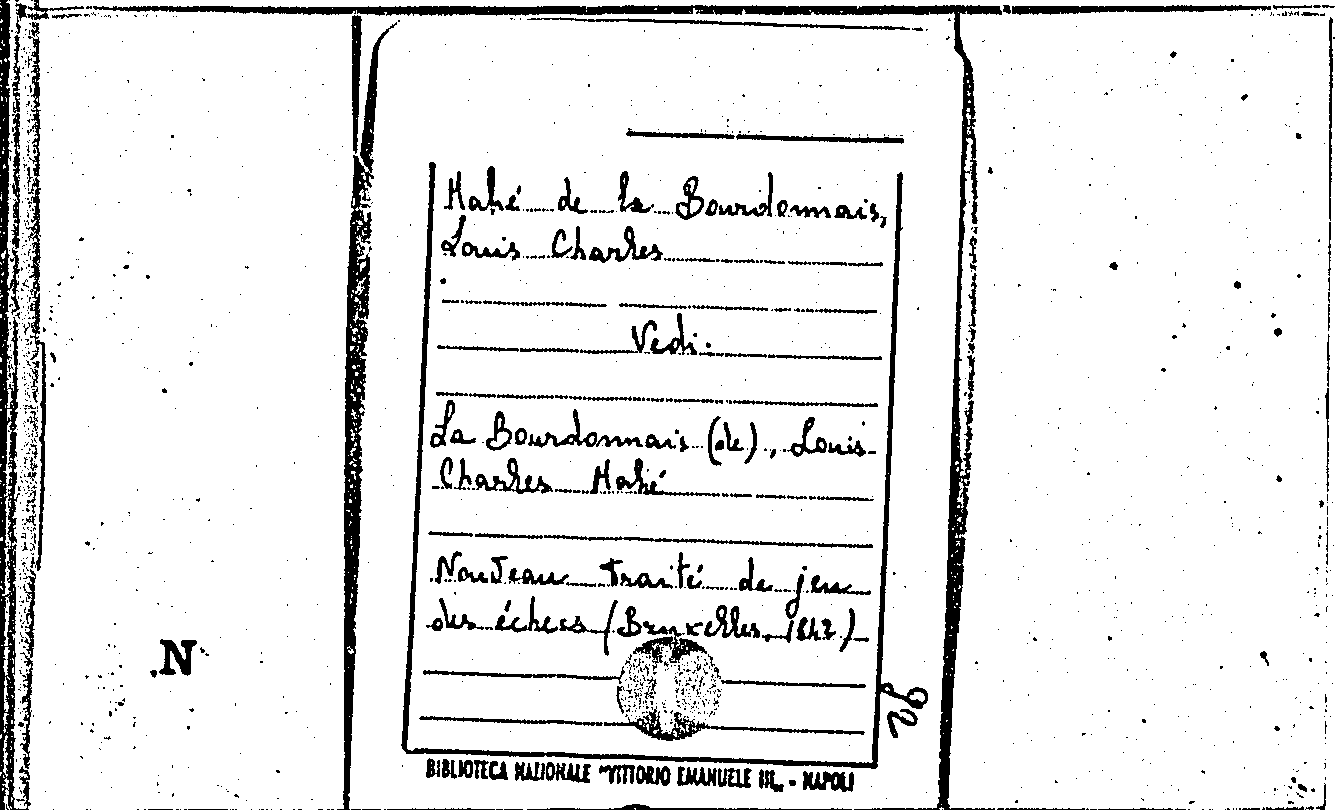 Mahé de la Bourdonnais,
Louis Charles
Vedi:
La Bourdonnais (de), Louis-
Charles Mahé
Nouveau traité de jeu
des échecs (Bruxelles, 1842)
N
BIBLIOTECA NAZIONALE "VITTORIO EMANUELE III„ - NAPOLI